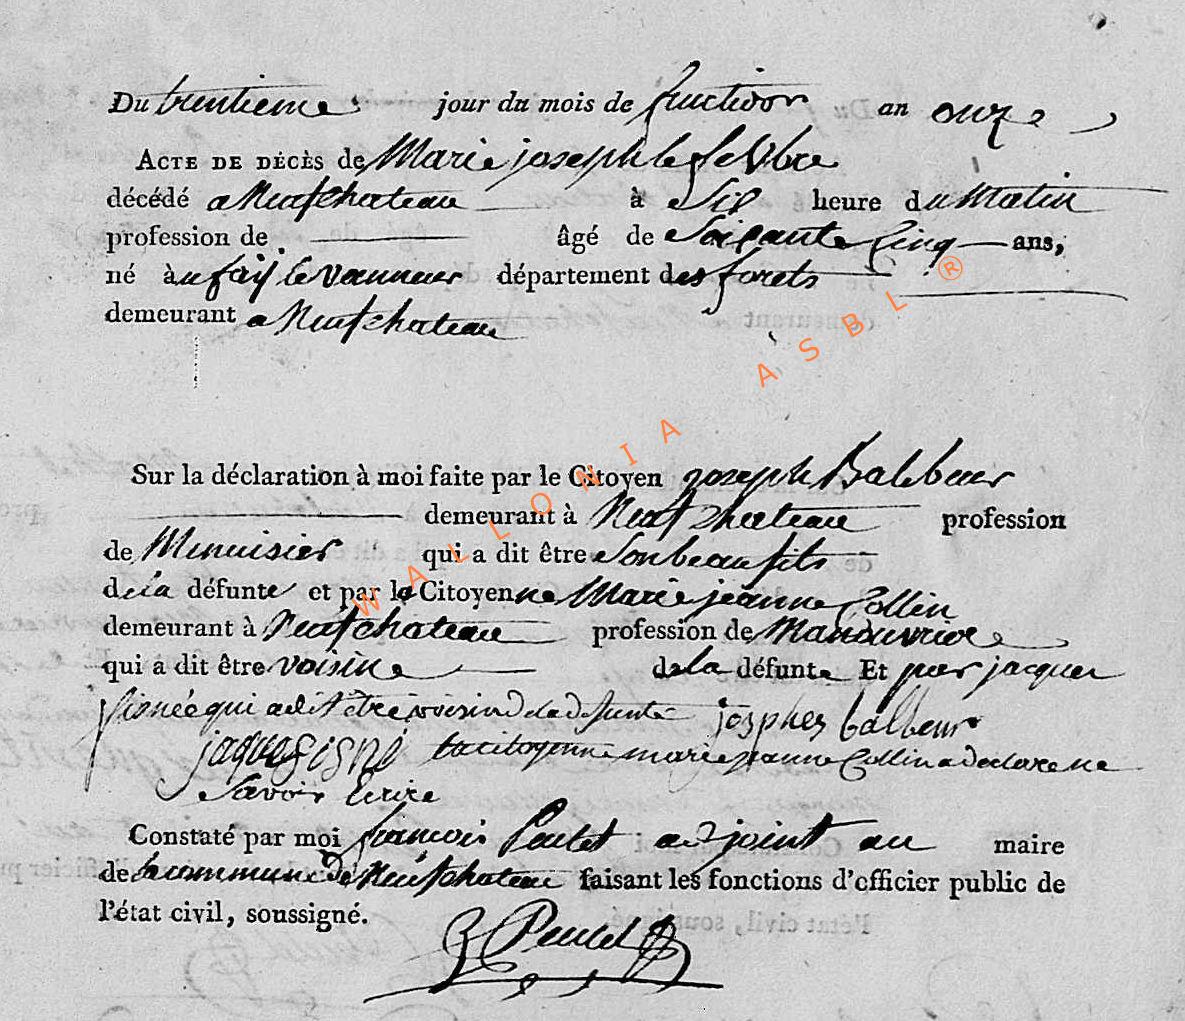 Du trentieme jour du mois de fructidor an onze
ACTE DE DÉCÈS de Marie joseph le febvre
décédé a Neufchateau à Six heure du Matin
profession de âgé de Soixante Cinq ans,
né à u fay le vanneur département des forets
demeurant a Neufchateau
Sur la déclaration à moi faite par le Citoyen joseph Balbeur
demeurant à Neufchateau profession
de Menuisier qui a dit être Son beau fils
de la défunte et par le Citoyenne Marie jeanne Collin
demeurant à Neufchateau profession de Manouvriere
qui a dit être voisine de la défunte Et par jacques
qui a dit être voisin de la defunte josphes balbeur
la citoyenne marie jeanne Collin a declare ne
Savoir Ecrire
Constaté par moi françois adjoint au maire
de la commune de Neufchateau faisant les fonctions d'officier public de
l'état civil, soussigné.
WALLONIA ASBL ®